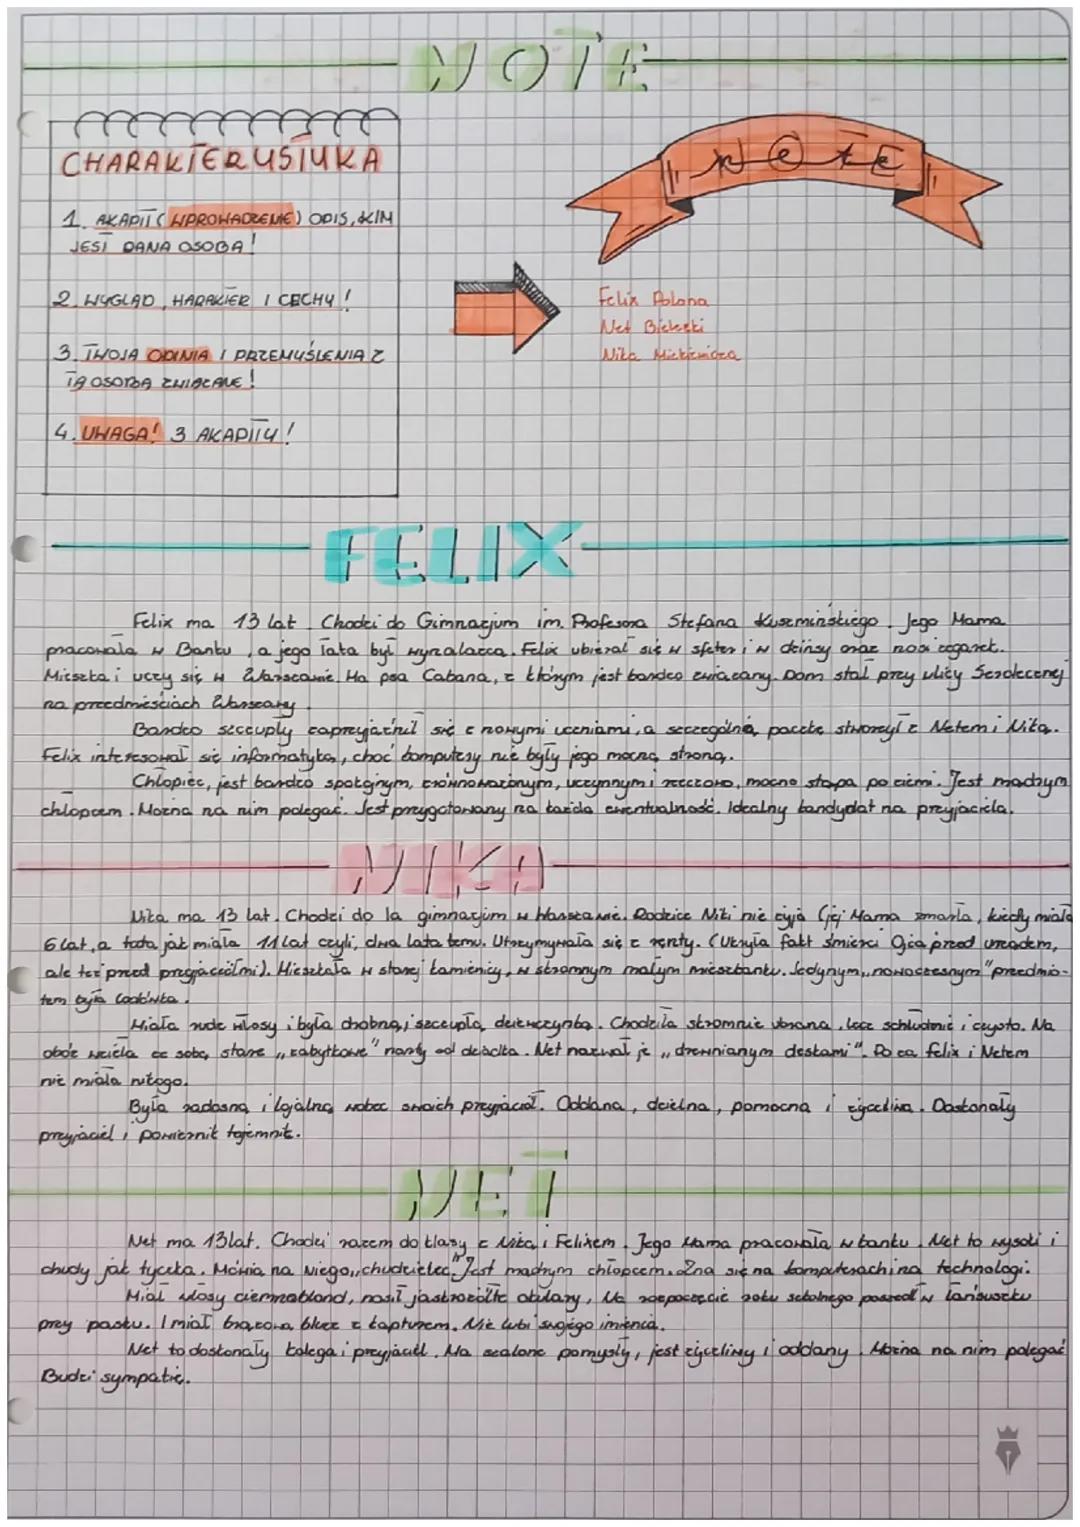 NOTE
CHARAKTERYSTYKA
1. AKAPIT (WPROWADZENIE) OPIS, KIM
JEST DANA OSOBA!
2. WYGLĄD, HARAKTER I CECHY!
3. TWOJA OPINIA I PRZEMYŚLENIA Z
TĄ OSOBĄ ZWIĄZANE!
4. UWAGA! 3 AKAPITY!
NOTE
Felix Polona
Net Bielecki
Nika Mickiewicza
FELIX
Felix ma 13 lat. Chodzi do Gimnazjum im. Profesora Stefana Kuszmińskiego. Jego Mama
pracowała w Banku, a jego Tata był wynalazcą. Felix ubierał się w sfeter i w dżinsy oraz nosi zegarek.
Mieszka i uczy się w Warszawie. Ma psa Cabana, z którym jest bardzo związany. Dom stał przy ulicy Serdecznej
na przedmieściach Warszawy.
Bardzo szczupły zaprzyjaźnił się z nowymi uczniami, a szczególną paczkę stworzył z Netem i Niką.
Felix interesował się informatyką, choć komputery nie były jego mocną stroną.
Chłopiec, jest bardzo spokojnym, zrównoważonym, uczynnym i rzeczowo, mocno stąpa po ziemi. Jest mądrym
chłopcem. Można na nim polegać. Jest przygotowany na każdą ewentualność. Idealny kandydat na przyjaciela.
NIKA
Nika ma 13 lat. Chodzi do la gimnazjum w Warszawie. Rodzice Niki nie żyją (jej Mama zmarła, kiedy miała
6 lat, a tata jak miała 11 lat czyli, dwa lata temu. Utrzymywała się z renty. (Ukryła fakt śmierci Ojca przed urzędem,
ale też przed przyjaciółmi). Mieszkała w starej kamienicy, w skromnym małym mieszkanku. Jedynym „nowoczesnym" przedmio-
tem była lodówka.
Miała rude włosy i była drobną, i szczupłą, dziewczynką. Chodziła skromnie ubrana, lecz schludnie i czysto. Na
obóz wzięła ze sobą stare „zabytkowe" narty od dziadka. Net nazwał je „drewnianym deskami". Po za Felix i Netem
nie miała nikogo.
Była radosną i lojalną wobec swoich przyjaciół. Oddana, dzielna, pomocna i życzliwa. Doskonały
przyjaciel i powiernik tajemnic.
NET
Net ma 13 lat. Chodzi razem do klasy z Niką i Felixem. Jego Mama pracowała w banku. Net to wysoki i
chudy jak tyczka. Mówią na niego „chudzielec". Jest mądrym chłopcem. Zna się na komputerach i na technologi.
Miał włosy ciemnoblond, nosił jaskrożółte okulary, Na rozpoczęcie roku szkolnego poszedł w łańcuszku
przy pasku. I miał brązową bluzę z kapturem. Nie lubi swojego imienia.
Net to doskonały kolega i przyjaciel. Ma szalone pomysły, jest życzliwy i oddany. Można na nim polegać
Budzi sympatię.